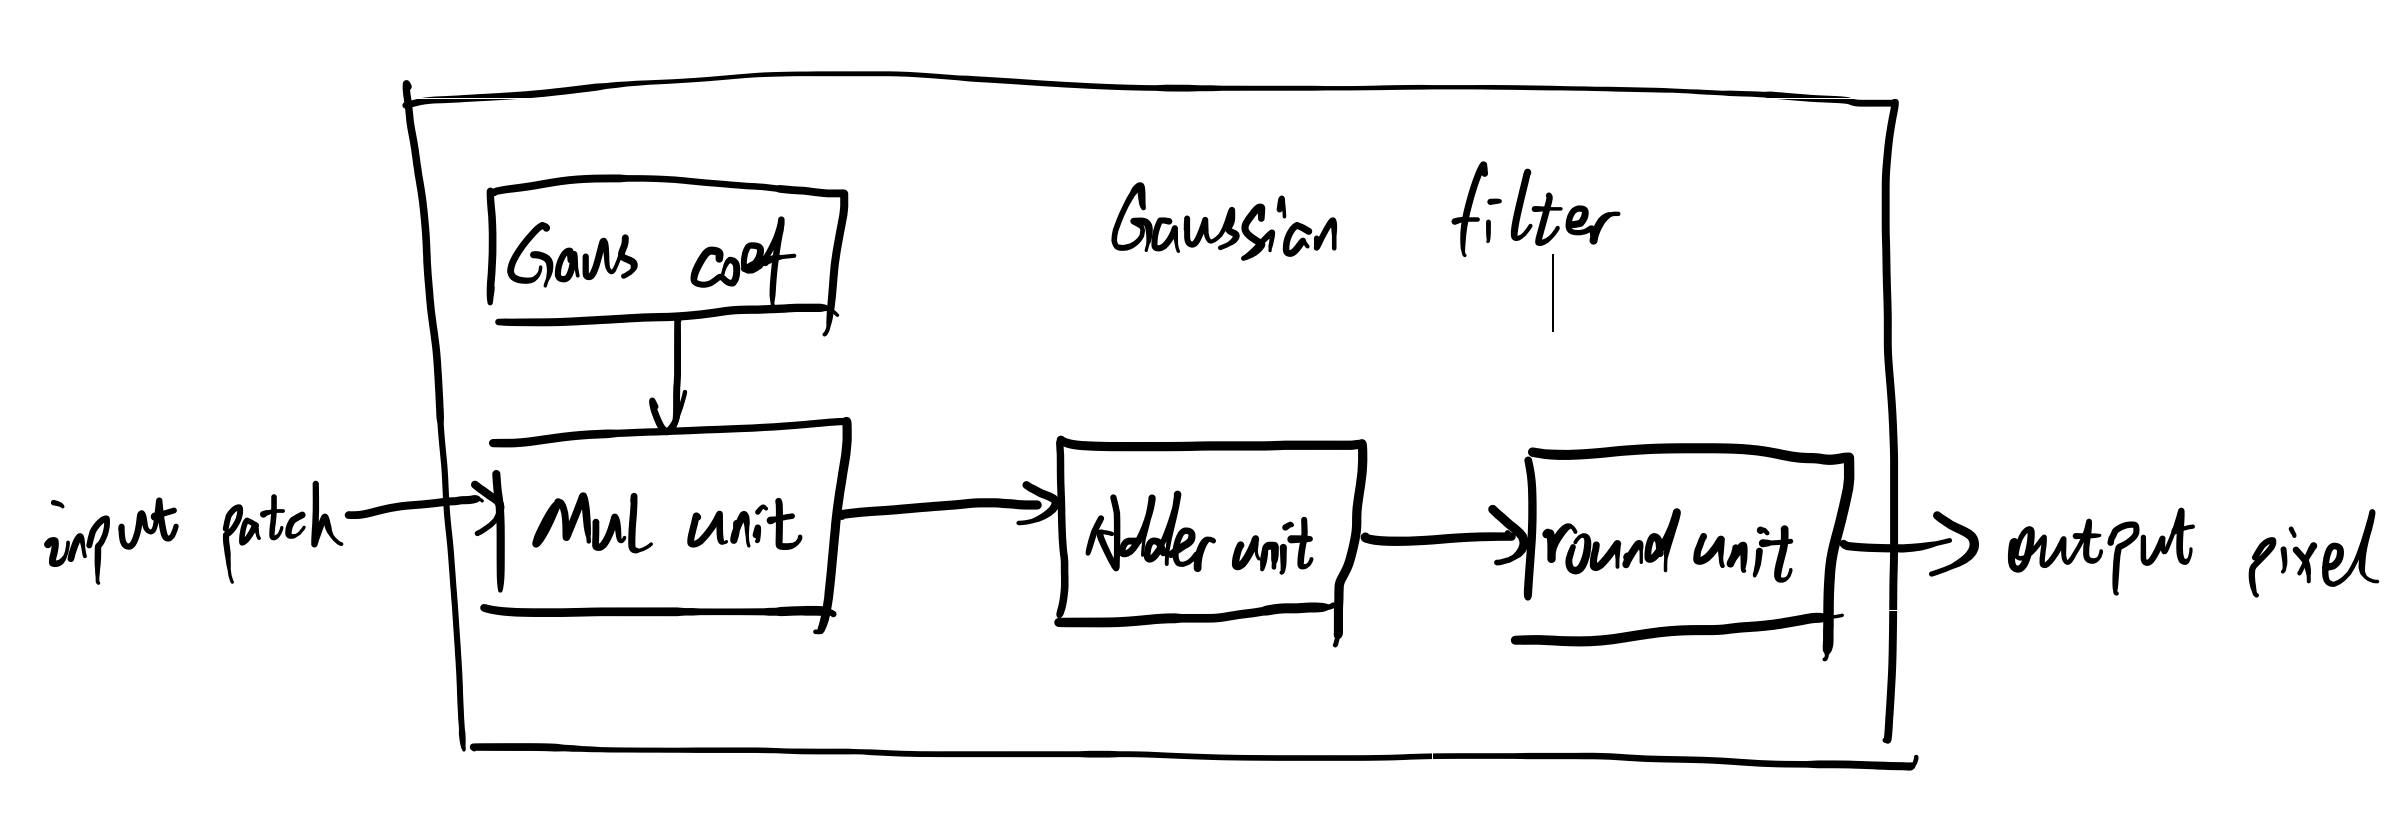 Gaussian filter
Gaus coef
input patch
MUL unit
Adder unit
round unit
output pixel